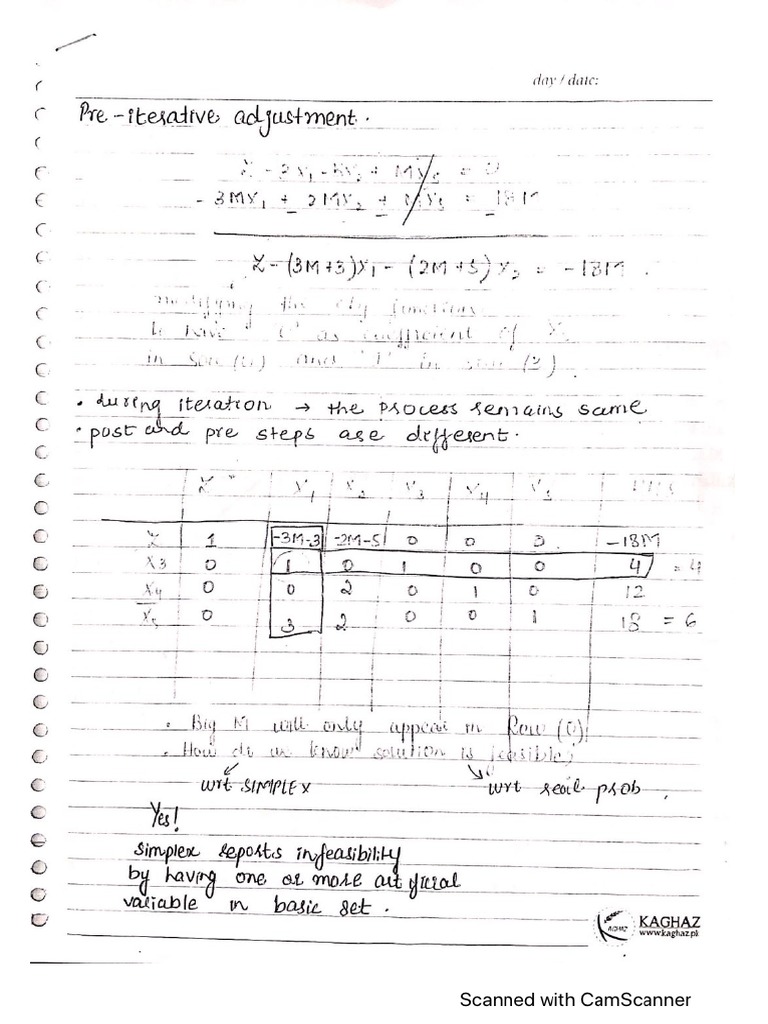 day / date:
Pre-iterative adjustment.
Z - 3x₁ - 5x₂ + Mx̄₅ = 0
- 3Mx₁ + 2Mx₂ + Mx̄₅ = 18M
Z - (3M+3)x₁ - (2M+5)x₂ = -18M.
modifying the obj function
to have "0" as coefficient of x̄₅
in row (0) and "1" in row (3).
• during iteration → the process remains same
• post and pre steps are different.
Z x₁ x₂ x₃ x₄ x̄₅ RHS
Z 1 -3M-3 -2M-5 0 0 0 -18M
x₃ 0 1 0 1 0 0 4 = 4
x₄ 0 0 2 0 1 0 12
x̄₅ 0 3 2 0 0 1 18 = 6
• Big M will only appear in Row (0)
• How do we know solution is feasible?
wrt SIMPLEX wrt real prob.
Yes!
simplex reports infeasibility
by having one or more artificial
variable in basic set.
KAGHAZ
www.kaghaz.pk
Scanned with CamScanner